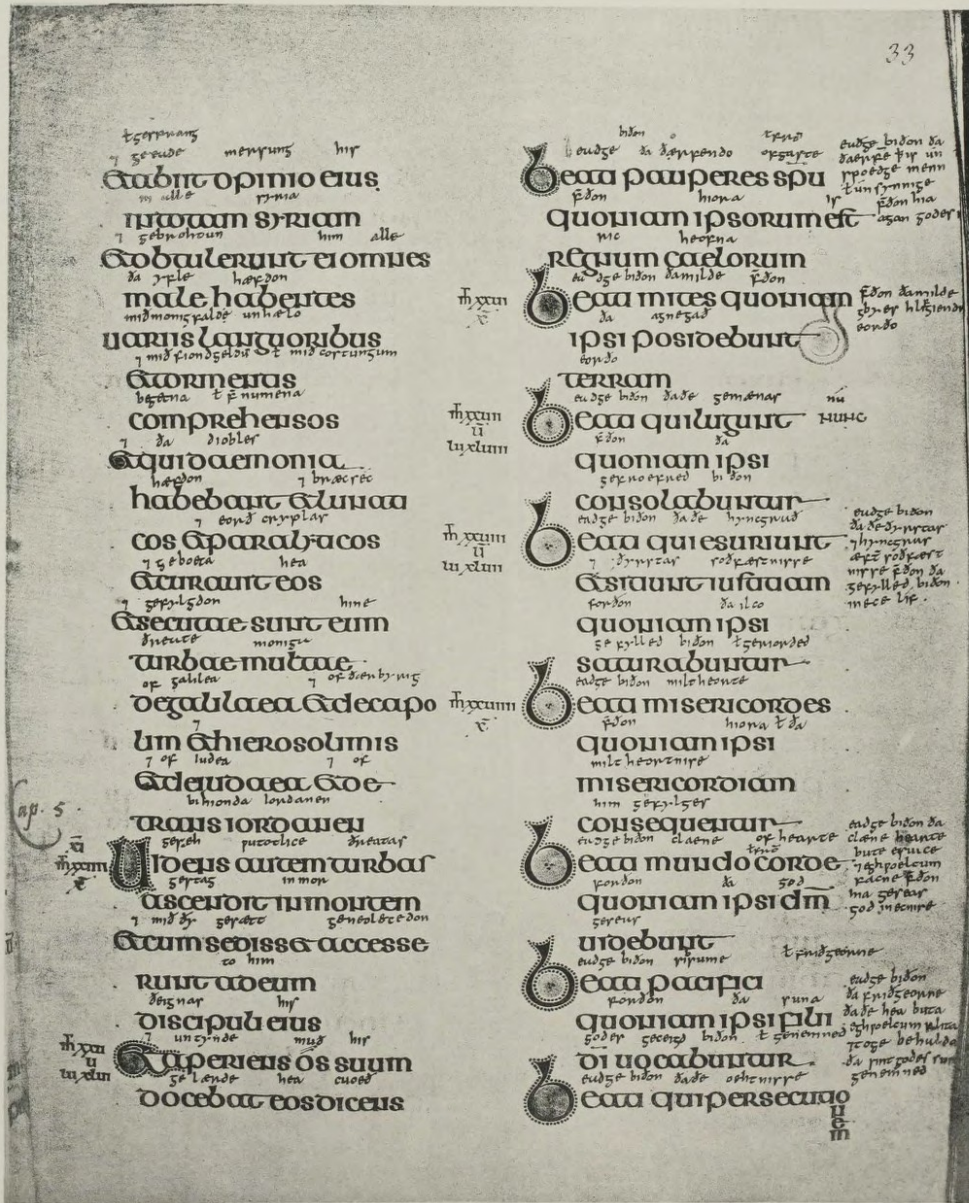 33
ł gesprang
⁊ geeude mersung his
Et abiit opinio eius
in alle syria
in totam syriam
⁊ gebrohtun him alle
Et obtulerunt ei omnes
ða yfle hæfdon
male habentes
mið monigfalde unhælo
uariis languoribus
⁊ mið fiondgeldū ł mið costungum
Et tormentis
begetna ł fornumena
comprehensos
⁊ ða diobles
Et qui daemonia
hæfdon ⁊ bræcsec
habebant et lunati
⁊ eorð cryplas
cos et paralyticos
⁊ geboeta hea
Et curauit eos
⁊ gefylgdon hine
Et secutae sunt eum
ðreate monigo
turbae multae
of galilea ⁊ of ðæm byrig
de galilaea et decapo
⁊
lim et hierosolimis
⁊ of iudea ⁊ of
Et de iudaea et de
bihionda iordanen
trans iordanen
Cap. 5.
geseh ɫutodlice ðreatas
Uidens autem turbas
gestag in mor
ascendit in montem
⁊ mið ðy gesætt geneolecedon
Et cum sedisset accesse
to him
runt ad eum
ðegnas his
discipuli eius
⁊ untynde muð his
Et aperiens os suum
ge lærde hea cuoeð
docebat eos dicens
biðon
eadge ða ðærfendo of gaste
Beati pauperes spu
fðon hiora is
quoniam ipsorum est
ric heofna
regnum caelorum
eadge biðon ða milde fðon
Beati mites quoniam
ða agnegað
ipsi posidebunt
eorðo
terram
eadge biðon ða ðe gemænas nú
Beati qui lugunt nunc
fðon ða
quoniam ipsi
gefroefred biðon
consolabuntur
eadge biðon ða ðe hyncgrað
Beati qui esuriunt
⁊ ðyrstas soðfæstnisse
Et sitiunt iustitiam
forðon ða ilco
quoniam ipsi
gefylled biðon ł geriorded
saturabuntur
eadge biðon miltheorte
Beati misericordes
fðon hiora ł ða
quoniam ipsi
miltheortnise
misericordiam
him gefylges
consequentur
eadge biðon claene of hearte
Beati mundo corde
forðon ða god
quoniam ipsi dm
geseas
uidebunt
eadge biðon sibsume ł friðgeorne
Beati pacifici
forðon ða suna
quoniam ipsi filii
godes geceigd biðon ł genemned
di uocabuntur
eadge biðon ða ðe oehtnisse
Beati qui persecutio
nem
eadge biðon ða
ðaerfe þ is un
spoedge menn
ł unsynnige
fðon hia
agan godes
fðon ða milde
eorðo
eadge biðon
ða ðe ðyrstas
⁊ hyncgras
æft soðfæst
nisse fðon ða
gefylled biðon
in ece lif.
eadge biðon ða
clæne hearte
buta esuice
⁊ eghwoelcum
facne fðon
hia geseas
god in ecnise
eadge biðon
ða friðgeorne
ða ðe hea buta
eghwoelcum
ða sint godes
genemned